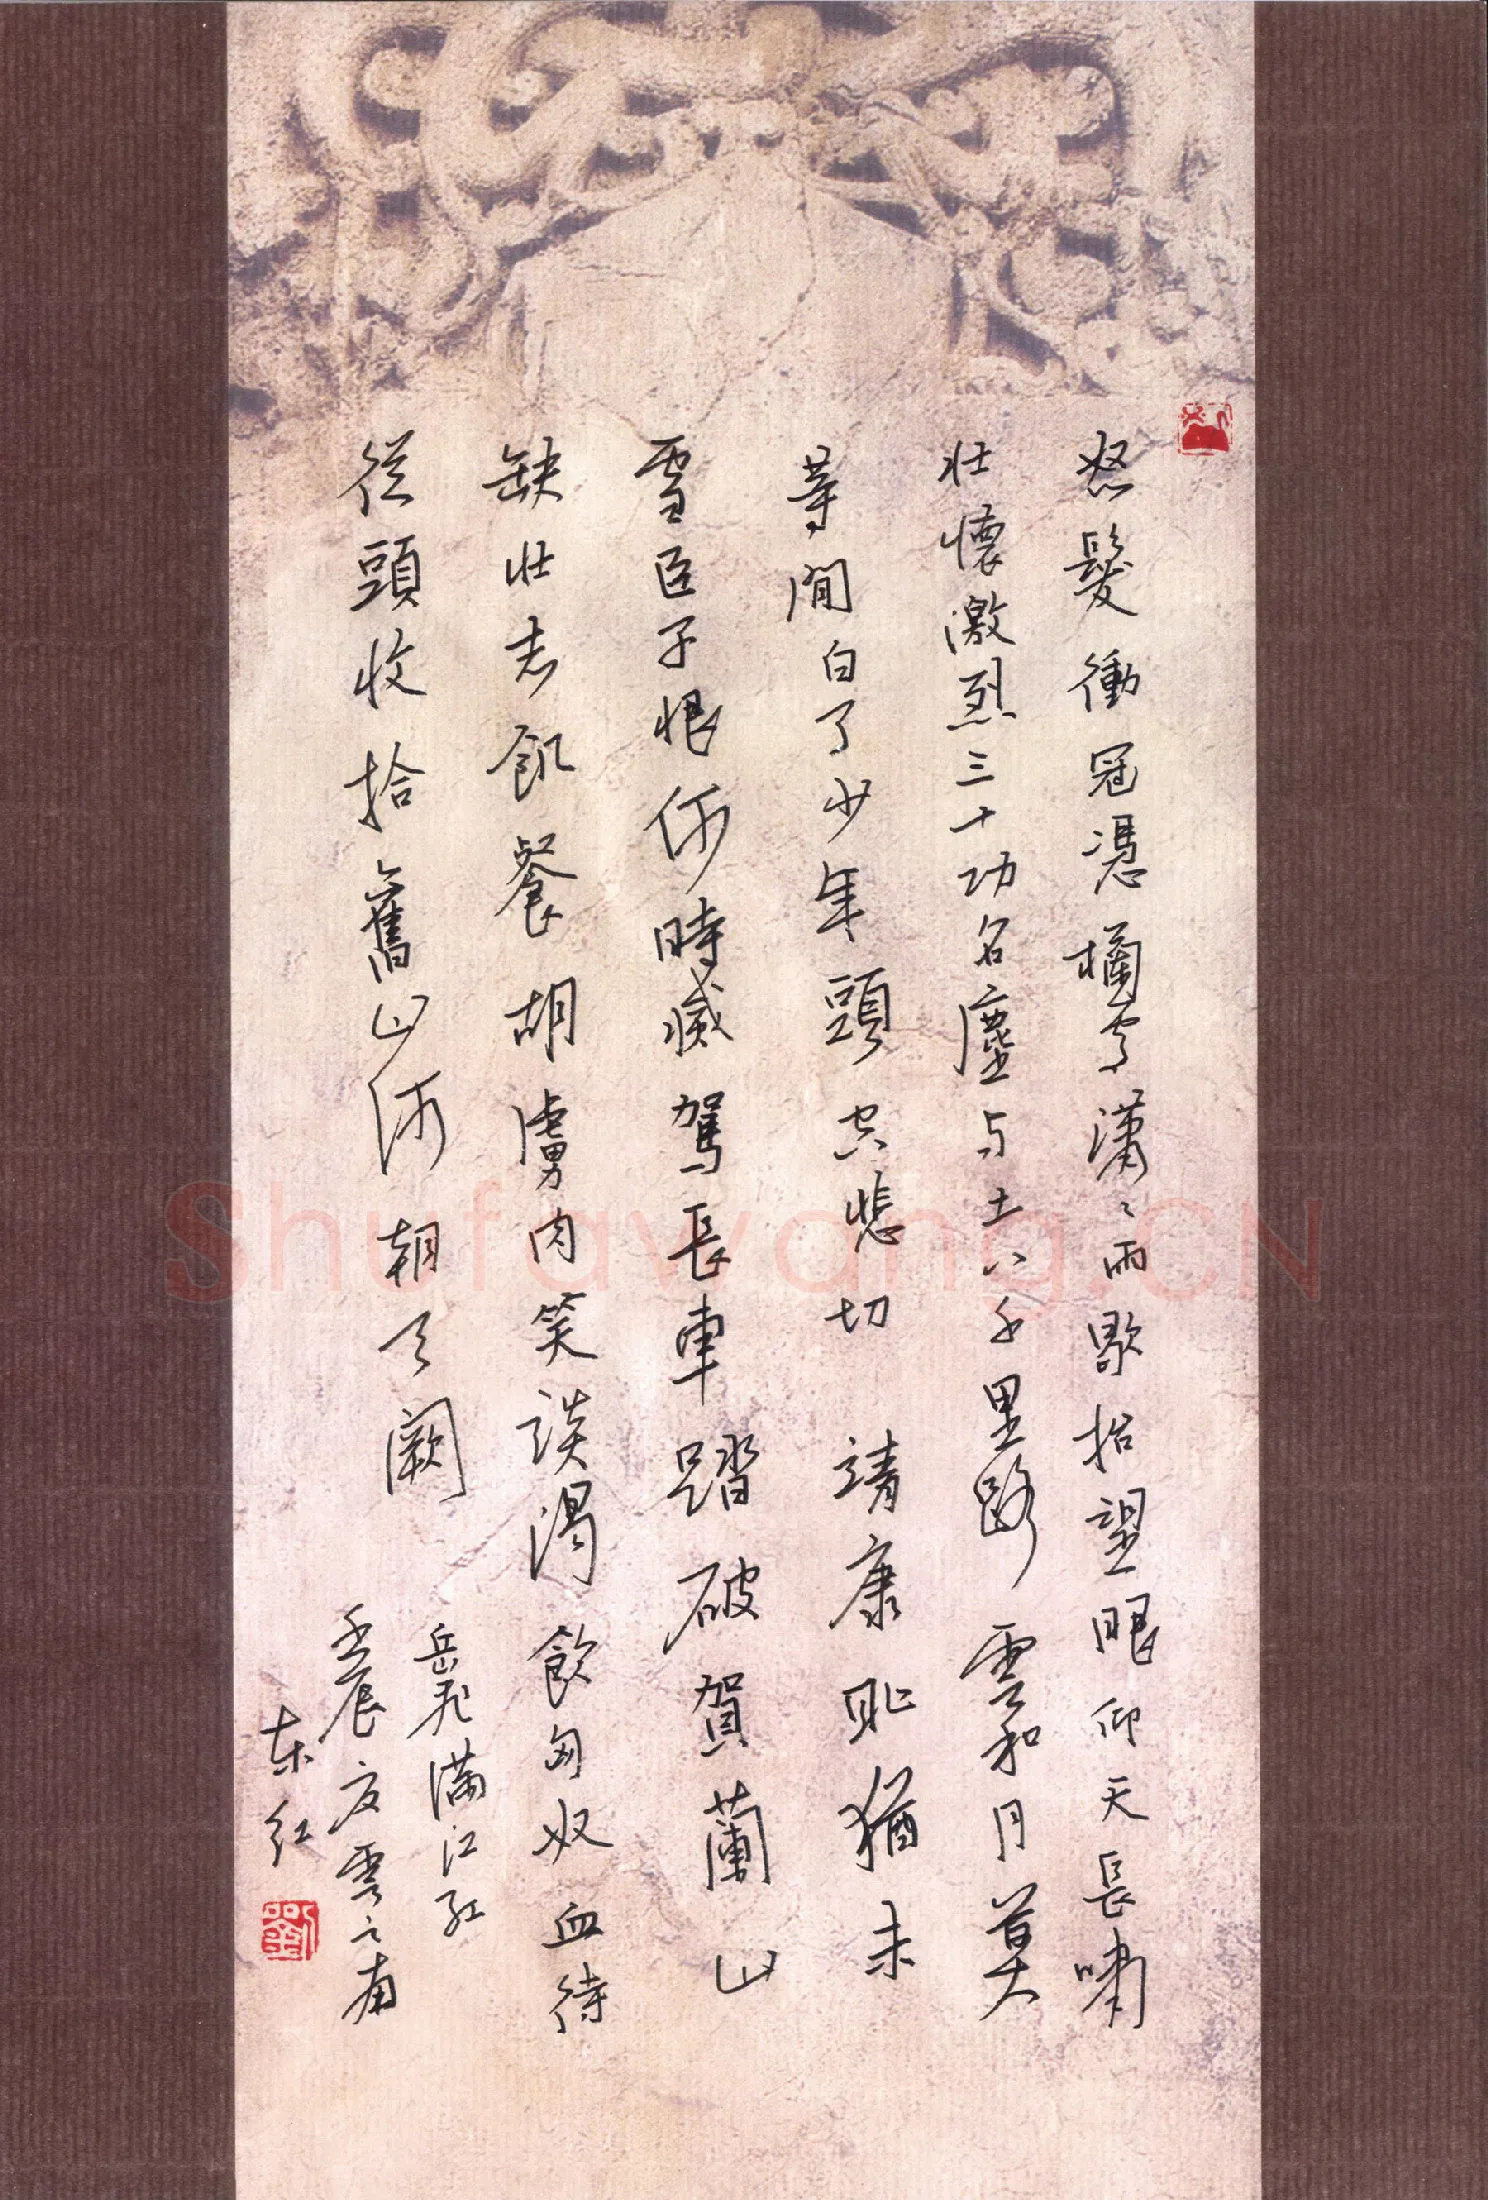 怒髮衝冠憑欄處瀟ミ雨歇抬望眼仰天長嘯
壯懷激烈三十功名塵与土八千里路雲和月莫
等閒白了少年頭空悲切 靖康耻猶未
雪臣子恨何時滅駕長車踏破賀蘭山
缺壯志飢餐胡虜肉笑談渴飲匈奴血待
從頭收拾舊山河朝天闕
岳飛滿江紅
壬辰夏雲之南
东红
劉
Shufawang.CN